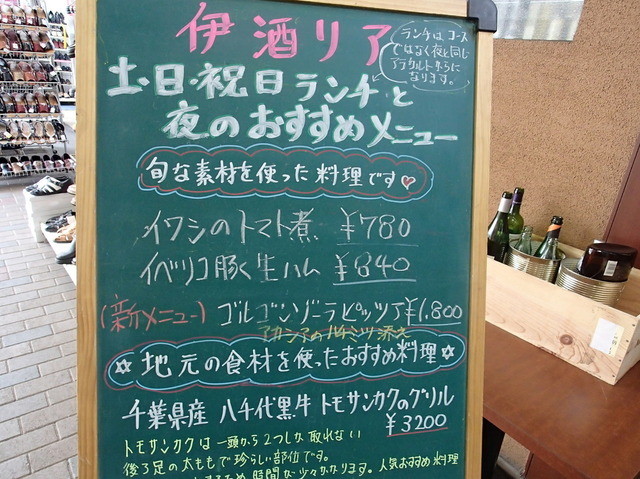 伊酒リア
ランチは、コース
ではなく夜と同じ
アラカルトからに
なります。
土・日・祝日ランチと
夜のおすすめメニュー
旬な素材を使った料理です♡
イワシのトマト煮 ¥780
イベリコ豚く生ハム ¥840
(新メニュー) ゴルゴンゾーラピッツァ ¥1,800
アカシアのハチミツ添え
✡地元の食材を使ったおすすめ料理✡
千葉県産 八千代黒牛 トモサンカクのグリル
¥3200
トモサンカクは一頭から2つしか取れない
後ろ足の太ももで珍らしい部位です。
時間が少々かかります。人気おすすめ料理